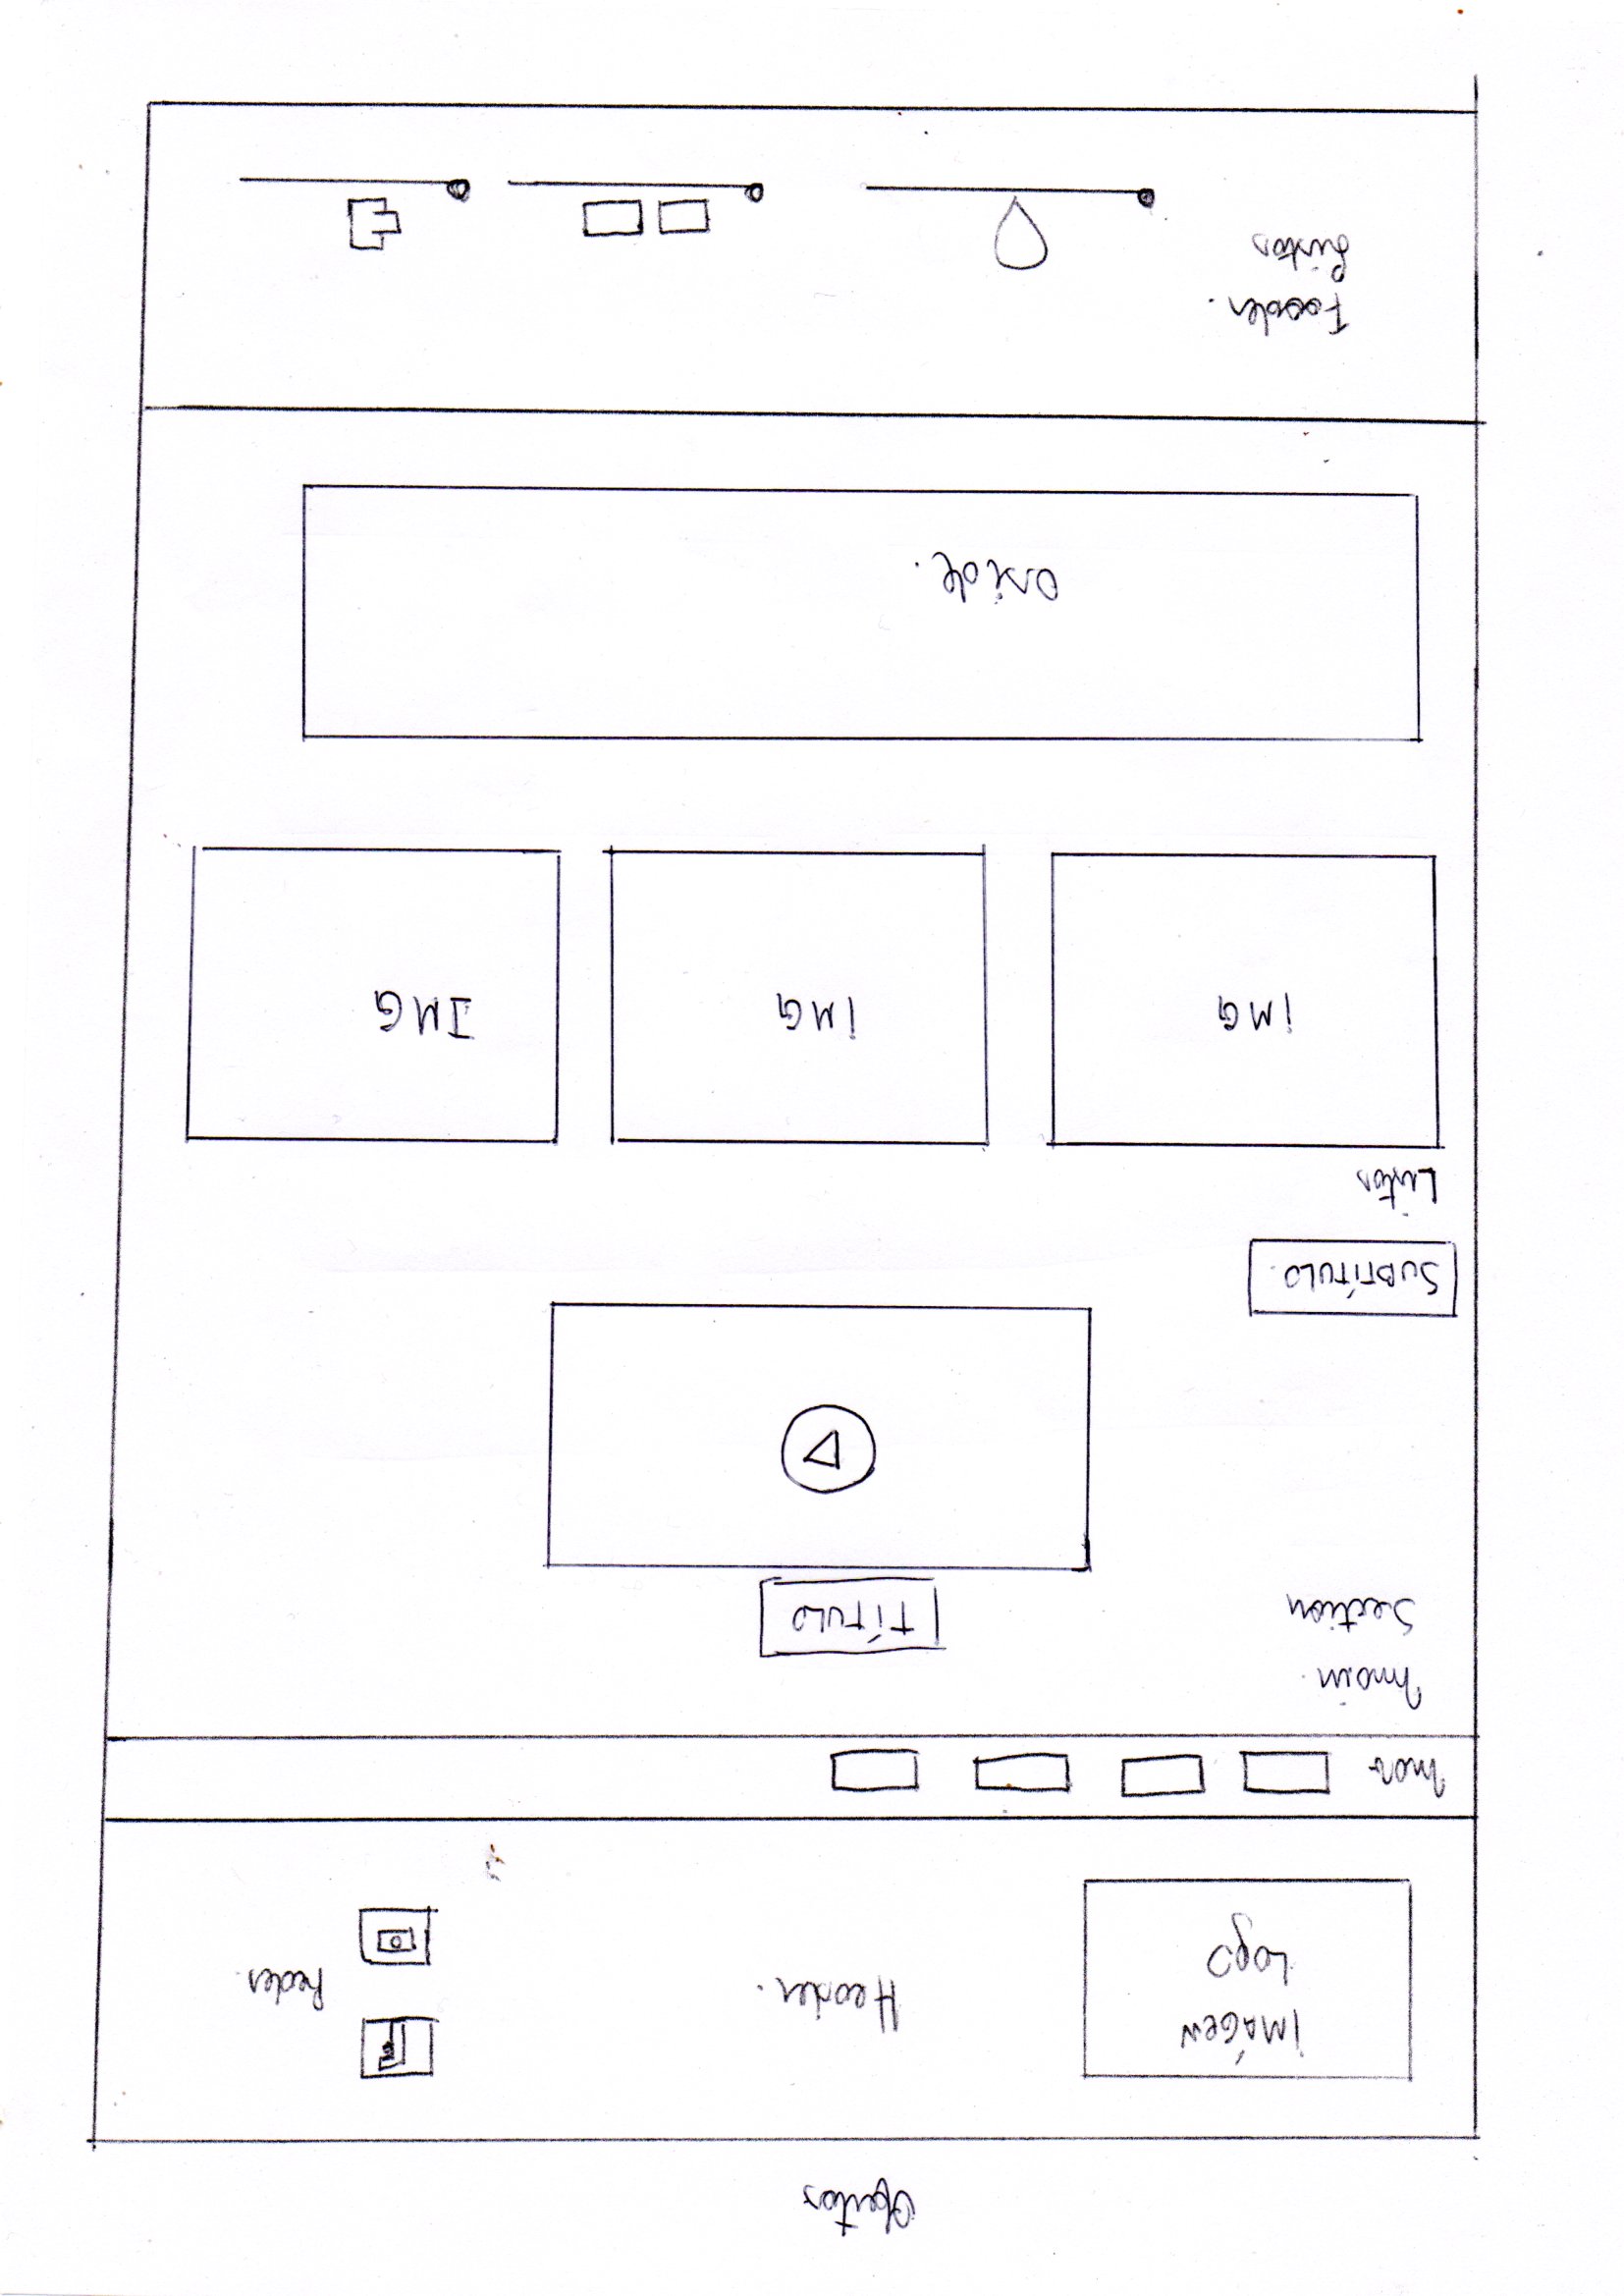 Ofertas
IMÁGEN
Logo
Header.
F
Redes.
nav
main.
Section
TÍTULO
SUBTÍTULO.
Listas
IMG
IMG
IMG
aside.
Fooder.
Listas